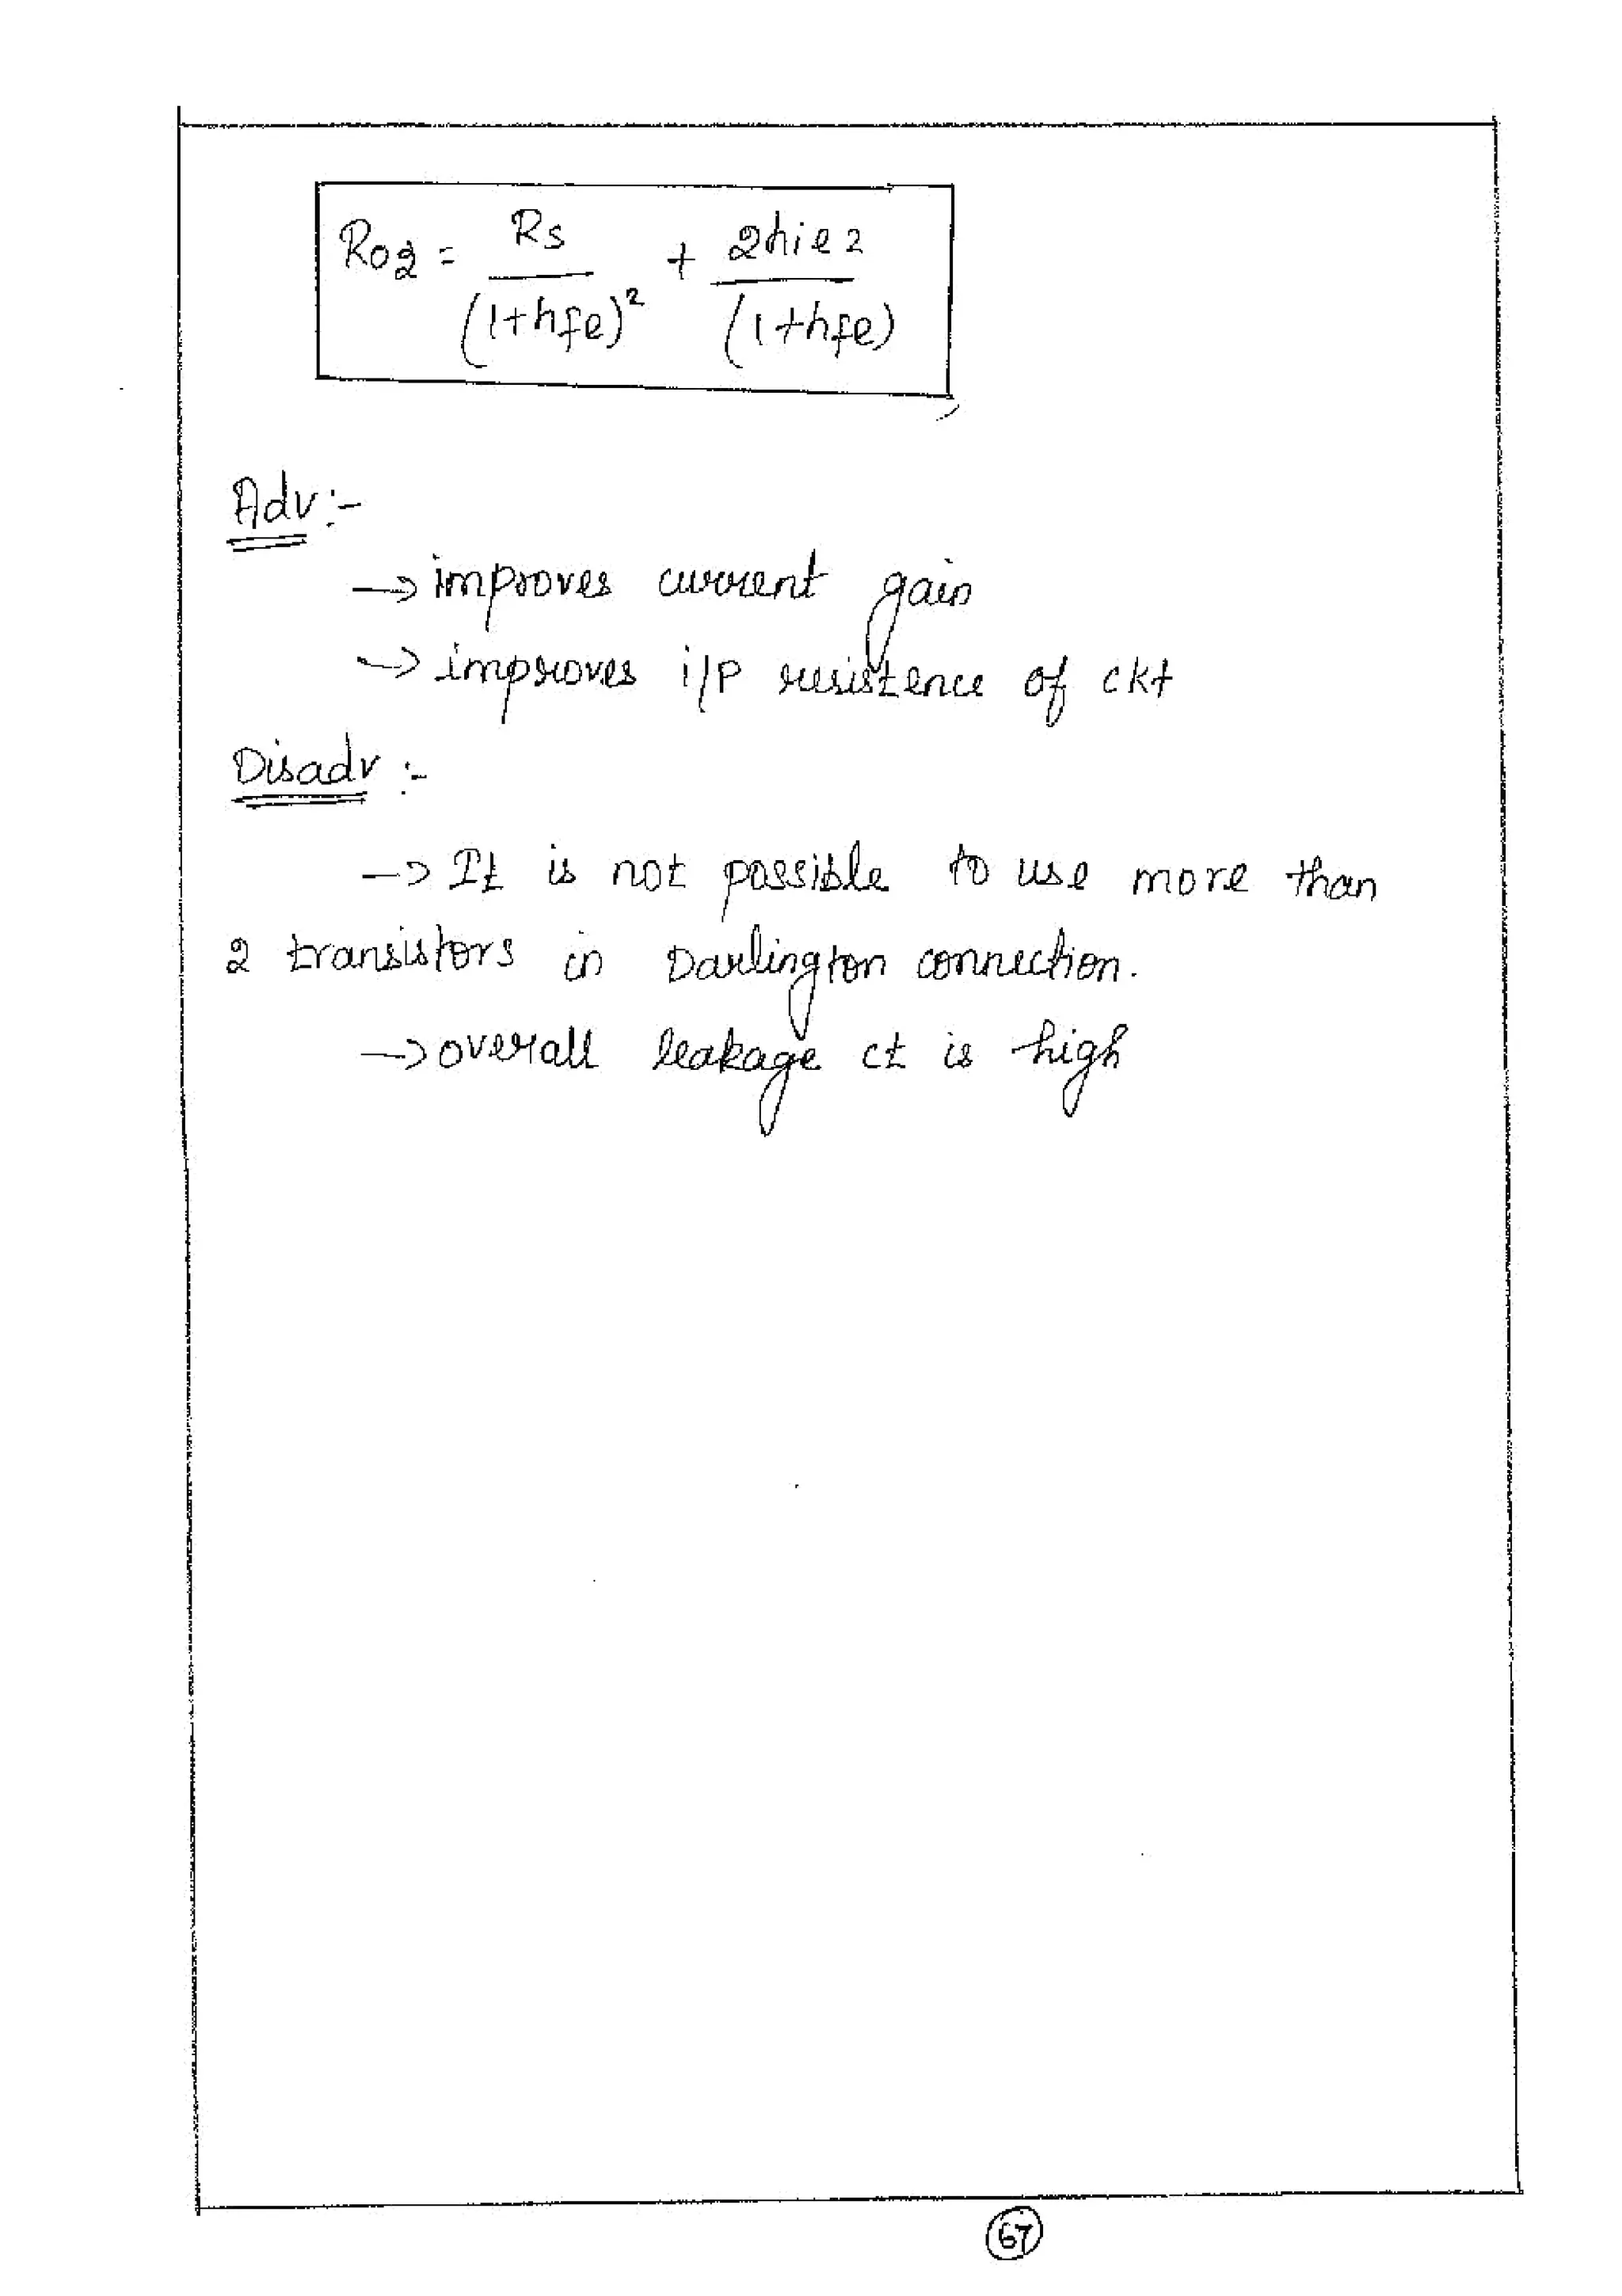 Ro2 = Rs/(1+hfe)² + 2hie2/(1+hfe)
Adv:-
→ improves current gain
→ improves i/p resistence of ckt
Disadv:-
→ It is not possible to use more than
2 transistors in Darlington connection.
→ overall leakage ct is high
67